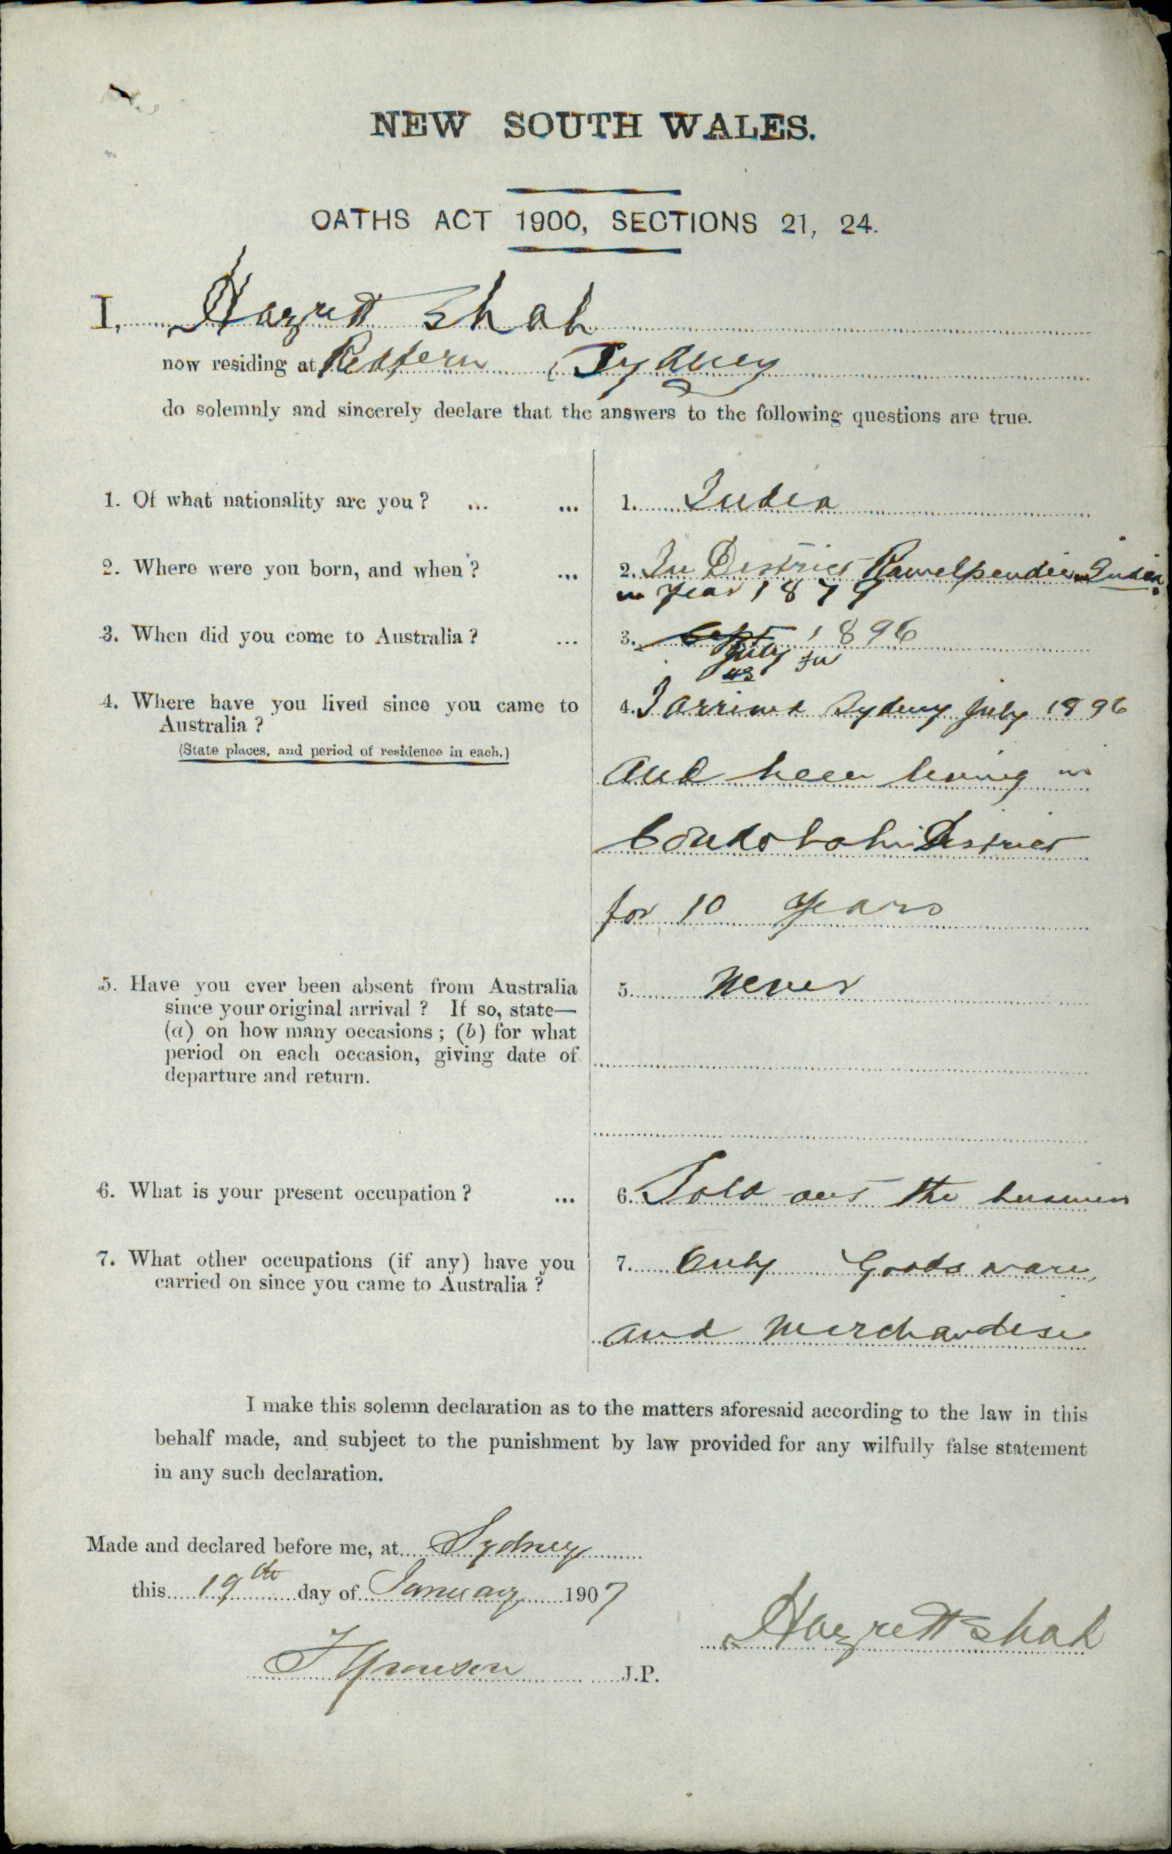 NEW SOUTH WALES.
OATHS ACT 1900, SECTIONS 21, 24.
I, Hazrett Shah
now residing at Redfern Sydney
do solemnly and sincerely declare that the answers to the following questions are true.
1. Of what nationality are you? ... ... 1. India
2. Where were you born, and when? ... 2. In District Rawelpendie in India.
in Year 1879
3. When did you come to Australia? ... 3. Sept 1896
July
4. Where have you lived since you came to Australia? 4. I arrived Sydney July 1896
(State places, and period of residence in each.)
and been living in
Condobolin District
for 10 years
5. Have you ever been absent from Australia 5. Never
since your original arrival? If so, state—
(a) on how many occasions; (b) for what
period on each occasion, giving date of
departure and return.
6. What is your present occupation? ... 6. Sold out the business
7. What other occupations (if any) have you 7. Only Goods ware,
carried on since you came to Australia?
and Merchandise
I make this solemn declaration as to the matters aforesaid according to the law in this
behalf made, and subject to the punishment by law provided for any wilfully false statement
in any such declaration.
Made and declared before me, at Sydney
this 19th day of January 1907
Hazrett Shah
J.P.